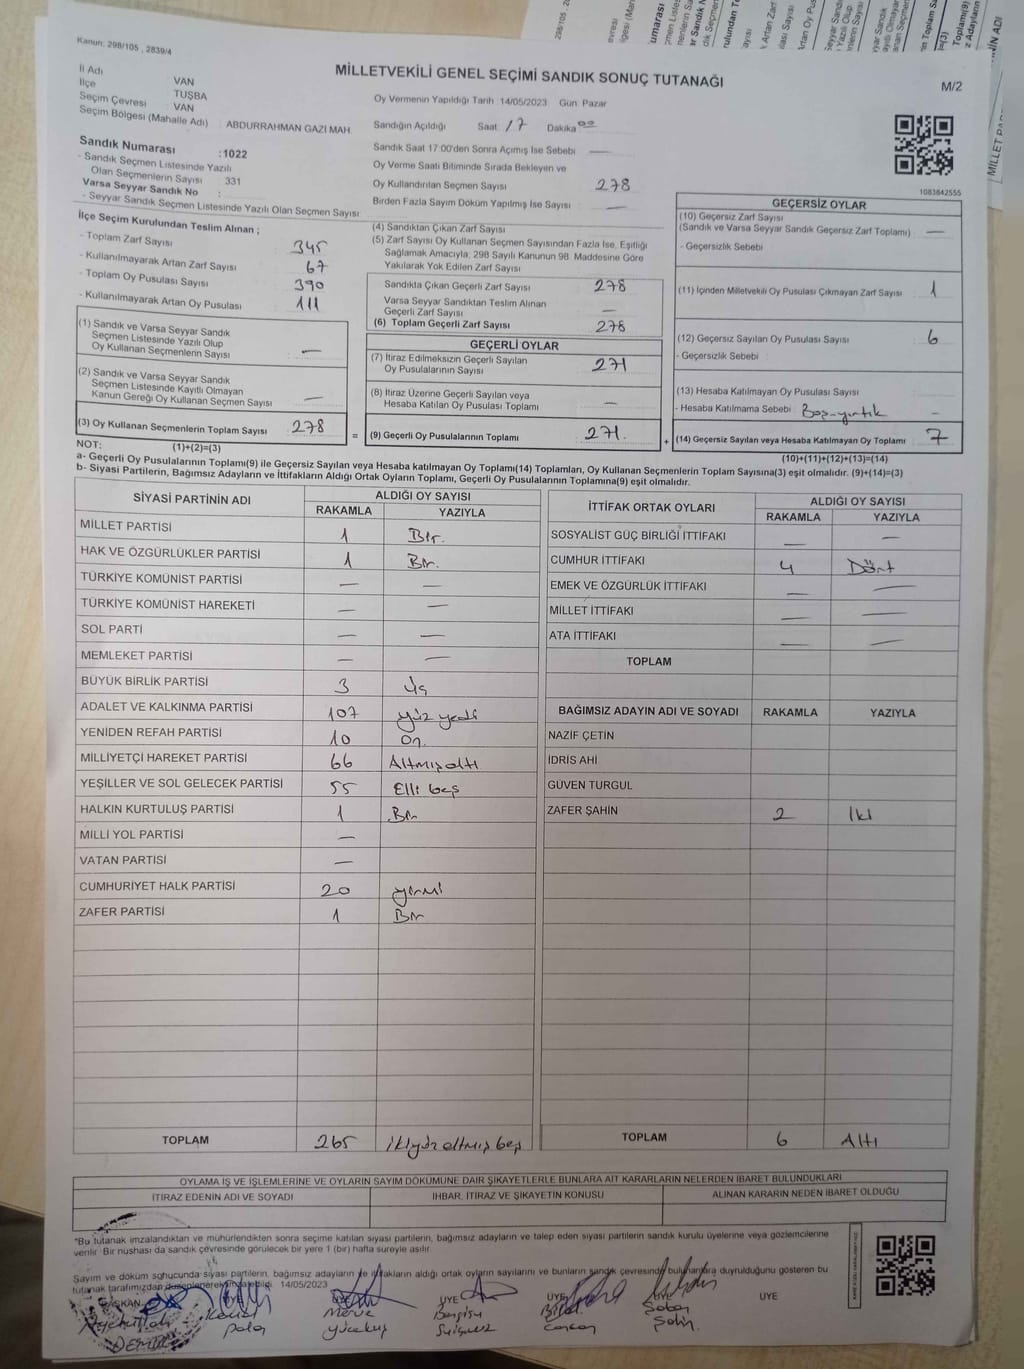 Kanun: 298/105 , 2839/4
MİLLETVEKİLİ GENEL SEÇİMİ SANDIK SONUÇ TUTANAĞI
M/2
İl Adı VAN
İlçe TUŞBA
Seçim Çevresi VAN
Seçim Bölgesi (Mahalle Adı) : ABDURRAHMAN GAZI MAH.
Oy Vermenin Yapıldığı Tarih : 14/05/2023 Gün: Pazar
Sandığın Açıldığı Saat 17 Dakika 00
Sandık Numarası :1022
- Sandık Seçmen Listesinde Yazılı
Olan Seçmenlerin Sayısı : 331
Varsa Seyyar Sandık No :
- Seyyar Sandık Seçmen Listesinde Yazılı Olan Seçmen Sayısı :
Sandık Saat 17 00'den Sonra Açımış İse Sebebi —
Oy Verme Saati Bitiminde Sırada Bekleyen ve
Oy Kullandırılan Seçmen Sayısı 278
Birden Fazla Sayım Döküm Yapılmış İse Sayısı —
1083842555
İlçe Seçim Kurulundan Teslim Alınan ;
- Toplam Zarf Sayısı 345
- Kullanılmayarak Artan Zarf Sayısı 67
- Toplam Oy Pusulası Sayısı 390
- Kullanılmayarak Artan Oy Pusulası 111
(1) Sandık ve Varsa Seyyar Sandık
Seçmen Listesinde Yazılı Olup
Oy Kullanan Seçmenlerin Sayısı : —
(2) Sandık ve Varsa Seyyar Sandık
Seçmen Listesinde Kayıtlı Olmayan
Kanun Gereği Oy Kullanan Seçmen Sayısı : —
(3) Oy Kullanan Seçmenlerin Toplam Sayısı 278
(1)+(2)=(3)
(4) Sandıktan Çıkan Zarf Sayısı
(5) Zarf Sayısı Oy Kullanan Seçmen Sayısından Fazla İse, Eşitliği
Sağlamak Amacıyla, 298 Sayılı Kanunun 98. Maddesine Göre
Yakılarak Yok Edilen Zarf Sayısı
Sandıkta Çıkan Geçerli Zarf Sayısı 278
Varsa Seyyar Sandıktan Teslim Alınan
Geçerli Zarf Sayısı —
(6) Toplam Geçerli Zarf Sayısı 278
GEÇERLİ OYLAR
(7) İtiraz Edilmeksizin Geçerli Sayılan
Oy Pusulalarının Sayısı 271
(8) İtiraz Üzerine Geçerli Sayılan veya
Hesaba Katılan Oy Pusulası Toplamı —
= (9) Geçerli Oy Pusulalarının Toplamı 271.
GEÇERSİZ OYLAR
(10) Geçersiz Zarf Sayısı
(Sandık ve Varsa Seyyar Sandık Geçersiz Zarf Toplamı) —
- Geçersizlik Sebebi
(11) İçinden Milletvekili Oy Pusulası Çıkmayan Zarf Sayısı 1
(12) Geçersiz Sayılan Oy Pusulası Sayısı 6
- Geçersizlik Sebebi
(13) Hesaba Katılmayan Oy Pusulası Sayısı
- Hesaba Katılmama Sebebi : Boş-yırtık -
+ (14) Geçersiz Sayılan veya Hesaba Katılmayan Oy Toplamı 7
(10)+(11)+(12)+(13)=(14)
NOT:
a- Geçerli Oy Pusulalarının Toplamı(9) ile Geçersiz Sayılan veya Hesaba katılmayan Oy Toplamı(14) Toplamları, Oy Kullanan Seçmenlerin Toplam Sayısına(3) eşit olmalıdır. (9)+(14)=(3)
b- Siyasi Partilerin, Bağımsız Adayların ve İttifakların Aldığı Ortak Oyların Toplamı, Geçerli Oy Pusulalarının Toplamına(9) eşit olmalıdır.
SİYASİ PARTİNİN ADI ALDIĞI OY SAYISI
RAKAMLA YAZIYLA
MİLLET PARTİSİ 1 Bir.
HAK VE ÖZGÜRLÜKLER PARTİSİ 1 Bir.
TÜRKİYE KOMÜNİST PARTİSİ — —
TÜRKİYE KOMÜNİST HAREKETİ — —
SOL PARTİ — —
MEMLEKET PARTİSİ — —
BÜYÜK BİRLİK PARTİSİ 3 üç
ADALET VE KALKINMA PARTİSİ 107 yüz yedi
YENİDEN REFAH PARTİSİ 10 On.
MİLLİYETÇİ HAREKET PARTİSİ 66 Altmışaltı
YEŞİLLER VE SOL GELECEK PARTİSİ 55 Elli beş
HALKIN KURTULUŞ PARTİSİ 1 Bir
MİLLİ YOL PARTİSİ —
VATAN PARTİSİ —
CUMHURİYET HALK PARTİSİ 20 yirmi
ZAFER PARTİSİ 1 Bir
TOPLAM 265 ikiyüz altmış beş
İTTİFAK ORTAK OYLARI ALDIĞI OY SAYISI
RAKAMLA YAZIYLA
SOSYALİST GÜÇ BİRLİĞİ İTTİFAKI — —
CUMHUR İTTİFAKI 4 Dört
EMEK VE ÖZGÜRLÜK İTTİFAKI — —
MİLLET İTTİFAKI — —
ATA İTTİFAKI — —
TOPLAM
BAĞIMSIZ ADAYIN ADI VE SOYADI RAKAMLA YAZIYLA
NAZİF ÇETİN
İDRİS AHİ
GÜVEN TURGUL
ZAFER ŞAHİN 2 İki
TOPLAM 6 Altı
OYLAMA İŞ VE İŞLEMLERİNE VE OYLARIN SAYIM DÖKÜMÜNE DAİR ŞİKAYETLERLE BUNLARA AİT KARARLARIN NELERDEN İBARET BULUNDUKLARI
İTİRAZ EDENİN ADI VE SOYADI IHBAR, İTİRAZ VE ŞİKAYETİN KONUSU ALINAN KARARIN NEDEN İBARET OLDUĞU
"Bu tutanak imzalandıktan ve mühürlendikten sonra seçime katılan siyasi partilerin, bağımsız adayların ve talep eden siyasi partilerin sandık kurulu üyelerine veya gözlemcilerine
verilir. Bir nüshası da sandık çevresinde görülecek bir yere 1 (bir) hafta süreyle asılır.
Sayım ve döküm sonucunda siyasi partilerin, bağımsız adayların ve ittifakların aldığı ortak oyların sayılarını ve bunların sandık çevresindeki bulunanlara duyrulduğunu gösteren bu
tutanak tarafımızdan düzenlenerek imzalanmıştır. 14/05/2023
BAŞKAN ÜYE ÜYE ÜYE ÜYE ÜYE ÜYE
Merve Saban
Polat Yücekuş Şahin